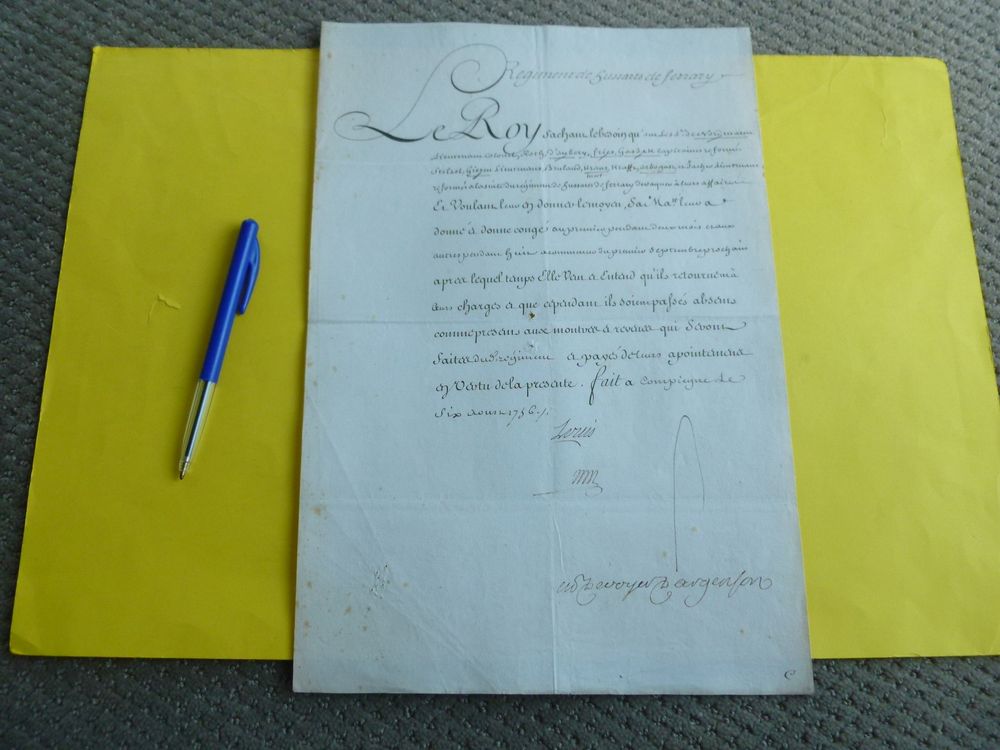 Regiment de hussars de ferrary
Le Roy sachant le besoin qu'ont les Srs de
Lieutenant colonel, Roth, D'aubery, Capitaines reformé
Lieutenans, Bruland, et Lieutenant
tant
reformé a la suite du regiment de hussars de ferrary de vaquer a leurs affaires
Et Voulant leur en donner le moyen, Sa Maté leur a
donné et donne congé au premier pendant deux mois et aux
autres pendant huit a commencer du premier Septembre prochain
aprés lequel temps Elle Veut et Entend qu'ils retournent a
leurs charges et que cependant ils soient passés absens
comme presens aux montres et reveües qui Seront
faites dud. regiment et payés de leurs apointemens
en Vertu de la presente. fait a Compiegne Le
Six Aoust 1756 ./.
Louis
M de Voyer D'argenson